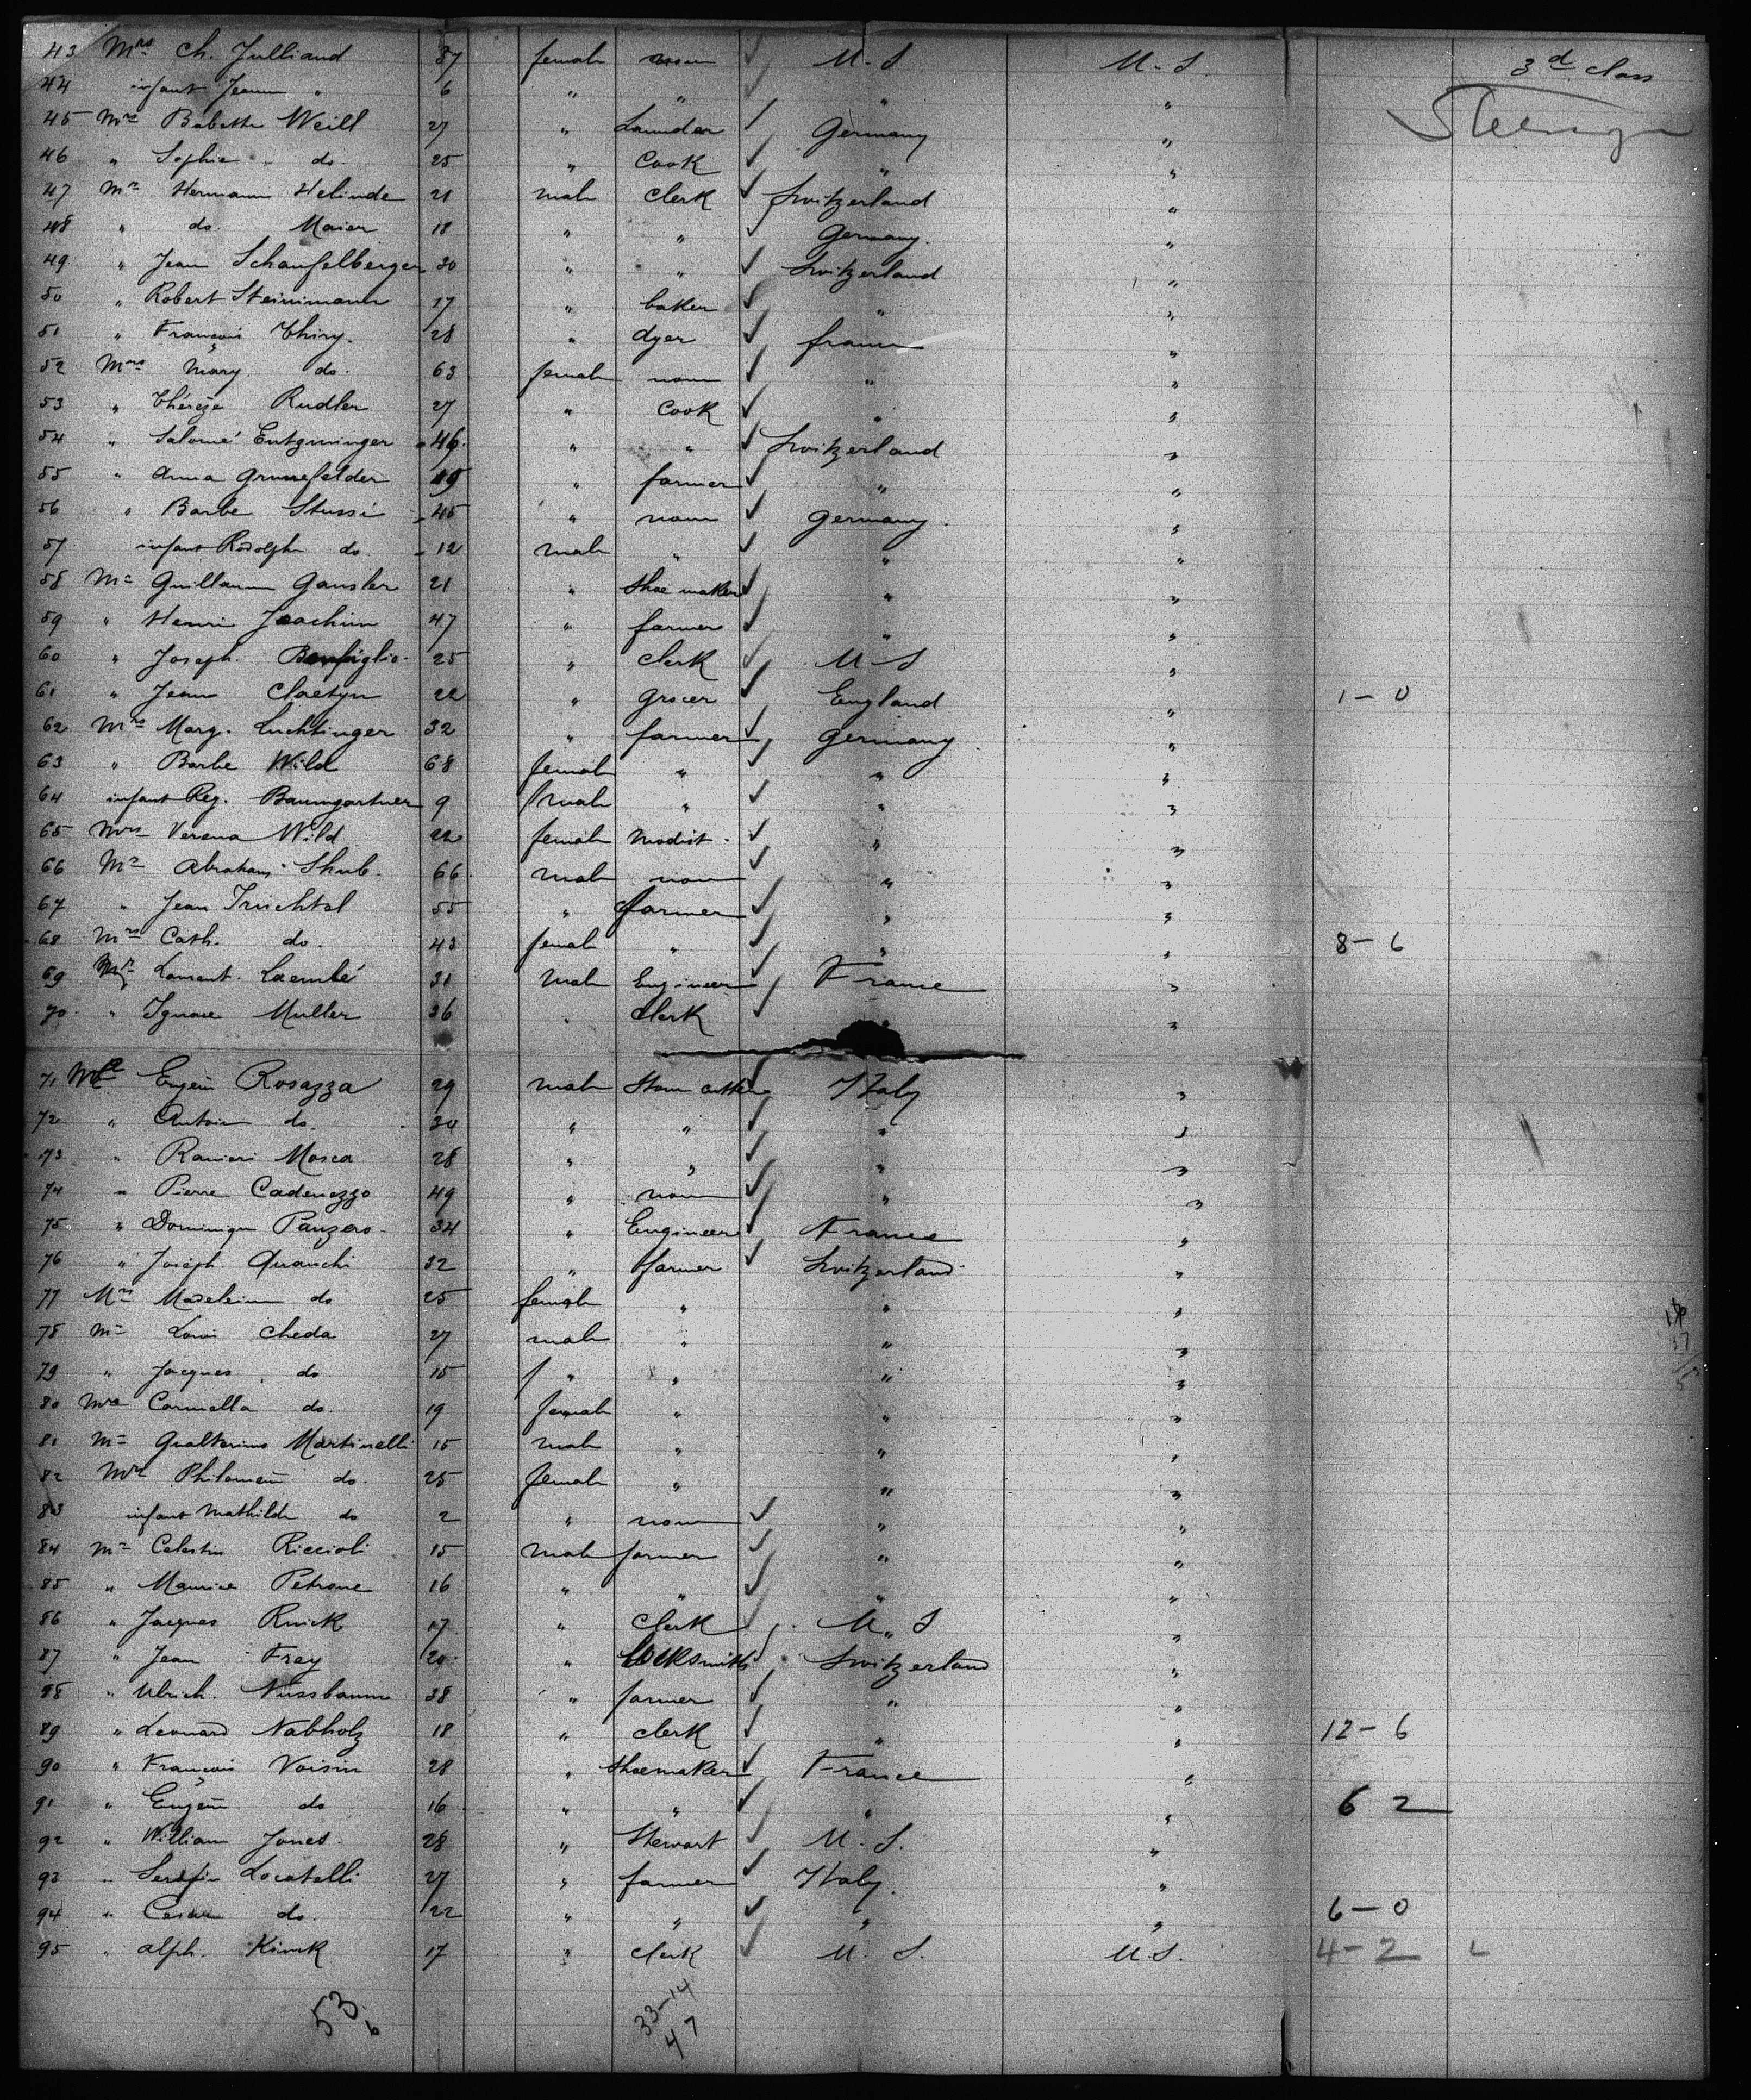 43 Mrs Ch. Julliand 37 female U.S U.S. 3d class
44 infant Jeanne " 6 " " " " Steerage
45 Mrs Babette Weill 27 " Launder Germany "
46 " Sophie do. 25 " Cook " "
47 Mr Hermann Helinde 21 male Clerk Switzerland "
48 " do Maier 18 " " Germany. "
49 " Jean Schaufelberger 30 " " Switzerland "
50 " Robert Steinimann 17 " baker " "
51 " François Thiry. 28 " dyer france "
52 Mrs Mary. do. 63 female none " "
53 " Thérèze Rudler 27 " Cook " "
54 " Salomé Entzminger 46. " " Switzerland "
55 " Anna Grunefelder 19 " farmer " "
56 " Barbe Stussi 45 " none Germany. "
57 infant Rodolphe do. 12 male " " "
58 Mr Guillaume Gansler 21 " Shoe maker " "
59 " Henri Joachim 47 " farmer " "
60 " Joseph. Bonfiglio. 25 " Clerk U-S "
61 " Jean Claetyn 22 " grocer England " 1-0
62 Mrs Marg. Luchtinger 32 " farmer Germany. "
63 " Barbe Wild 68 female " " "
64 infant Reg. Baumgartner 9 male " " "
65 Mrs Verena Wild 22 female Modist. " "
66 Mr Abraham Shub. 66. male none " "
67 " Jean Truchtel 55 " farmer " "
68 Mrs Cath. do. 43 female " " " 8-6
69 Mr Laurent. Laemlé 31 male Engineer France "
70. " Ignace Muller 36 " Clerk "
71 Mr Eugène Rosazza 29 male Stone cutter Italy "
72 " Antoine do. 30 " " " "
73 " Ranieri Mosca 28 " " " "
74 " Pierre Cadenazzo 49 " none " "
75. " Dominique Panzero. 34 " Engineer France "
76 " Joseph Quanchi 32 " farmer Switzerland "
77 Mrs Madeleine do 25 female " " "
78 Mr Louis Cheda 27 male " " "
79 " Jacques do 15 " " " "
80 Mrs Carmella do. 19 female " " "
81 Mr Gualterino Martinelli 15 male " " "
82 Mrs Philomene do. 25 female " " "
83 infant Mathilde do 2 " none " "
84 Mr Celestin Riccioli 15 male farmer " "
85 " Maurice Petrone 16 " " " "
86 " Jacques 17 " Clerk U.S "
87 " Jean Frey 20. " locksmith Switzerland "
88 " Ulrich. Nussbaum 38 " farmer " "
89 " Leonard Nabholz 18 " clerk " " 12-6
90 " François Voisin 28 " Shoemaker France "
91 " Eugène do 16 " " " " 6 2
92 " William Jones. 28 " Stewart U.S. "
93 " Serafin Locatelli 27 " farmer Italy. "
94 " Cesar do. 22 " " " " 6-0
95 " alph. 17 " clerk U.S. U.S. 4-2
53 33-14
6 47